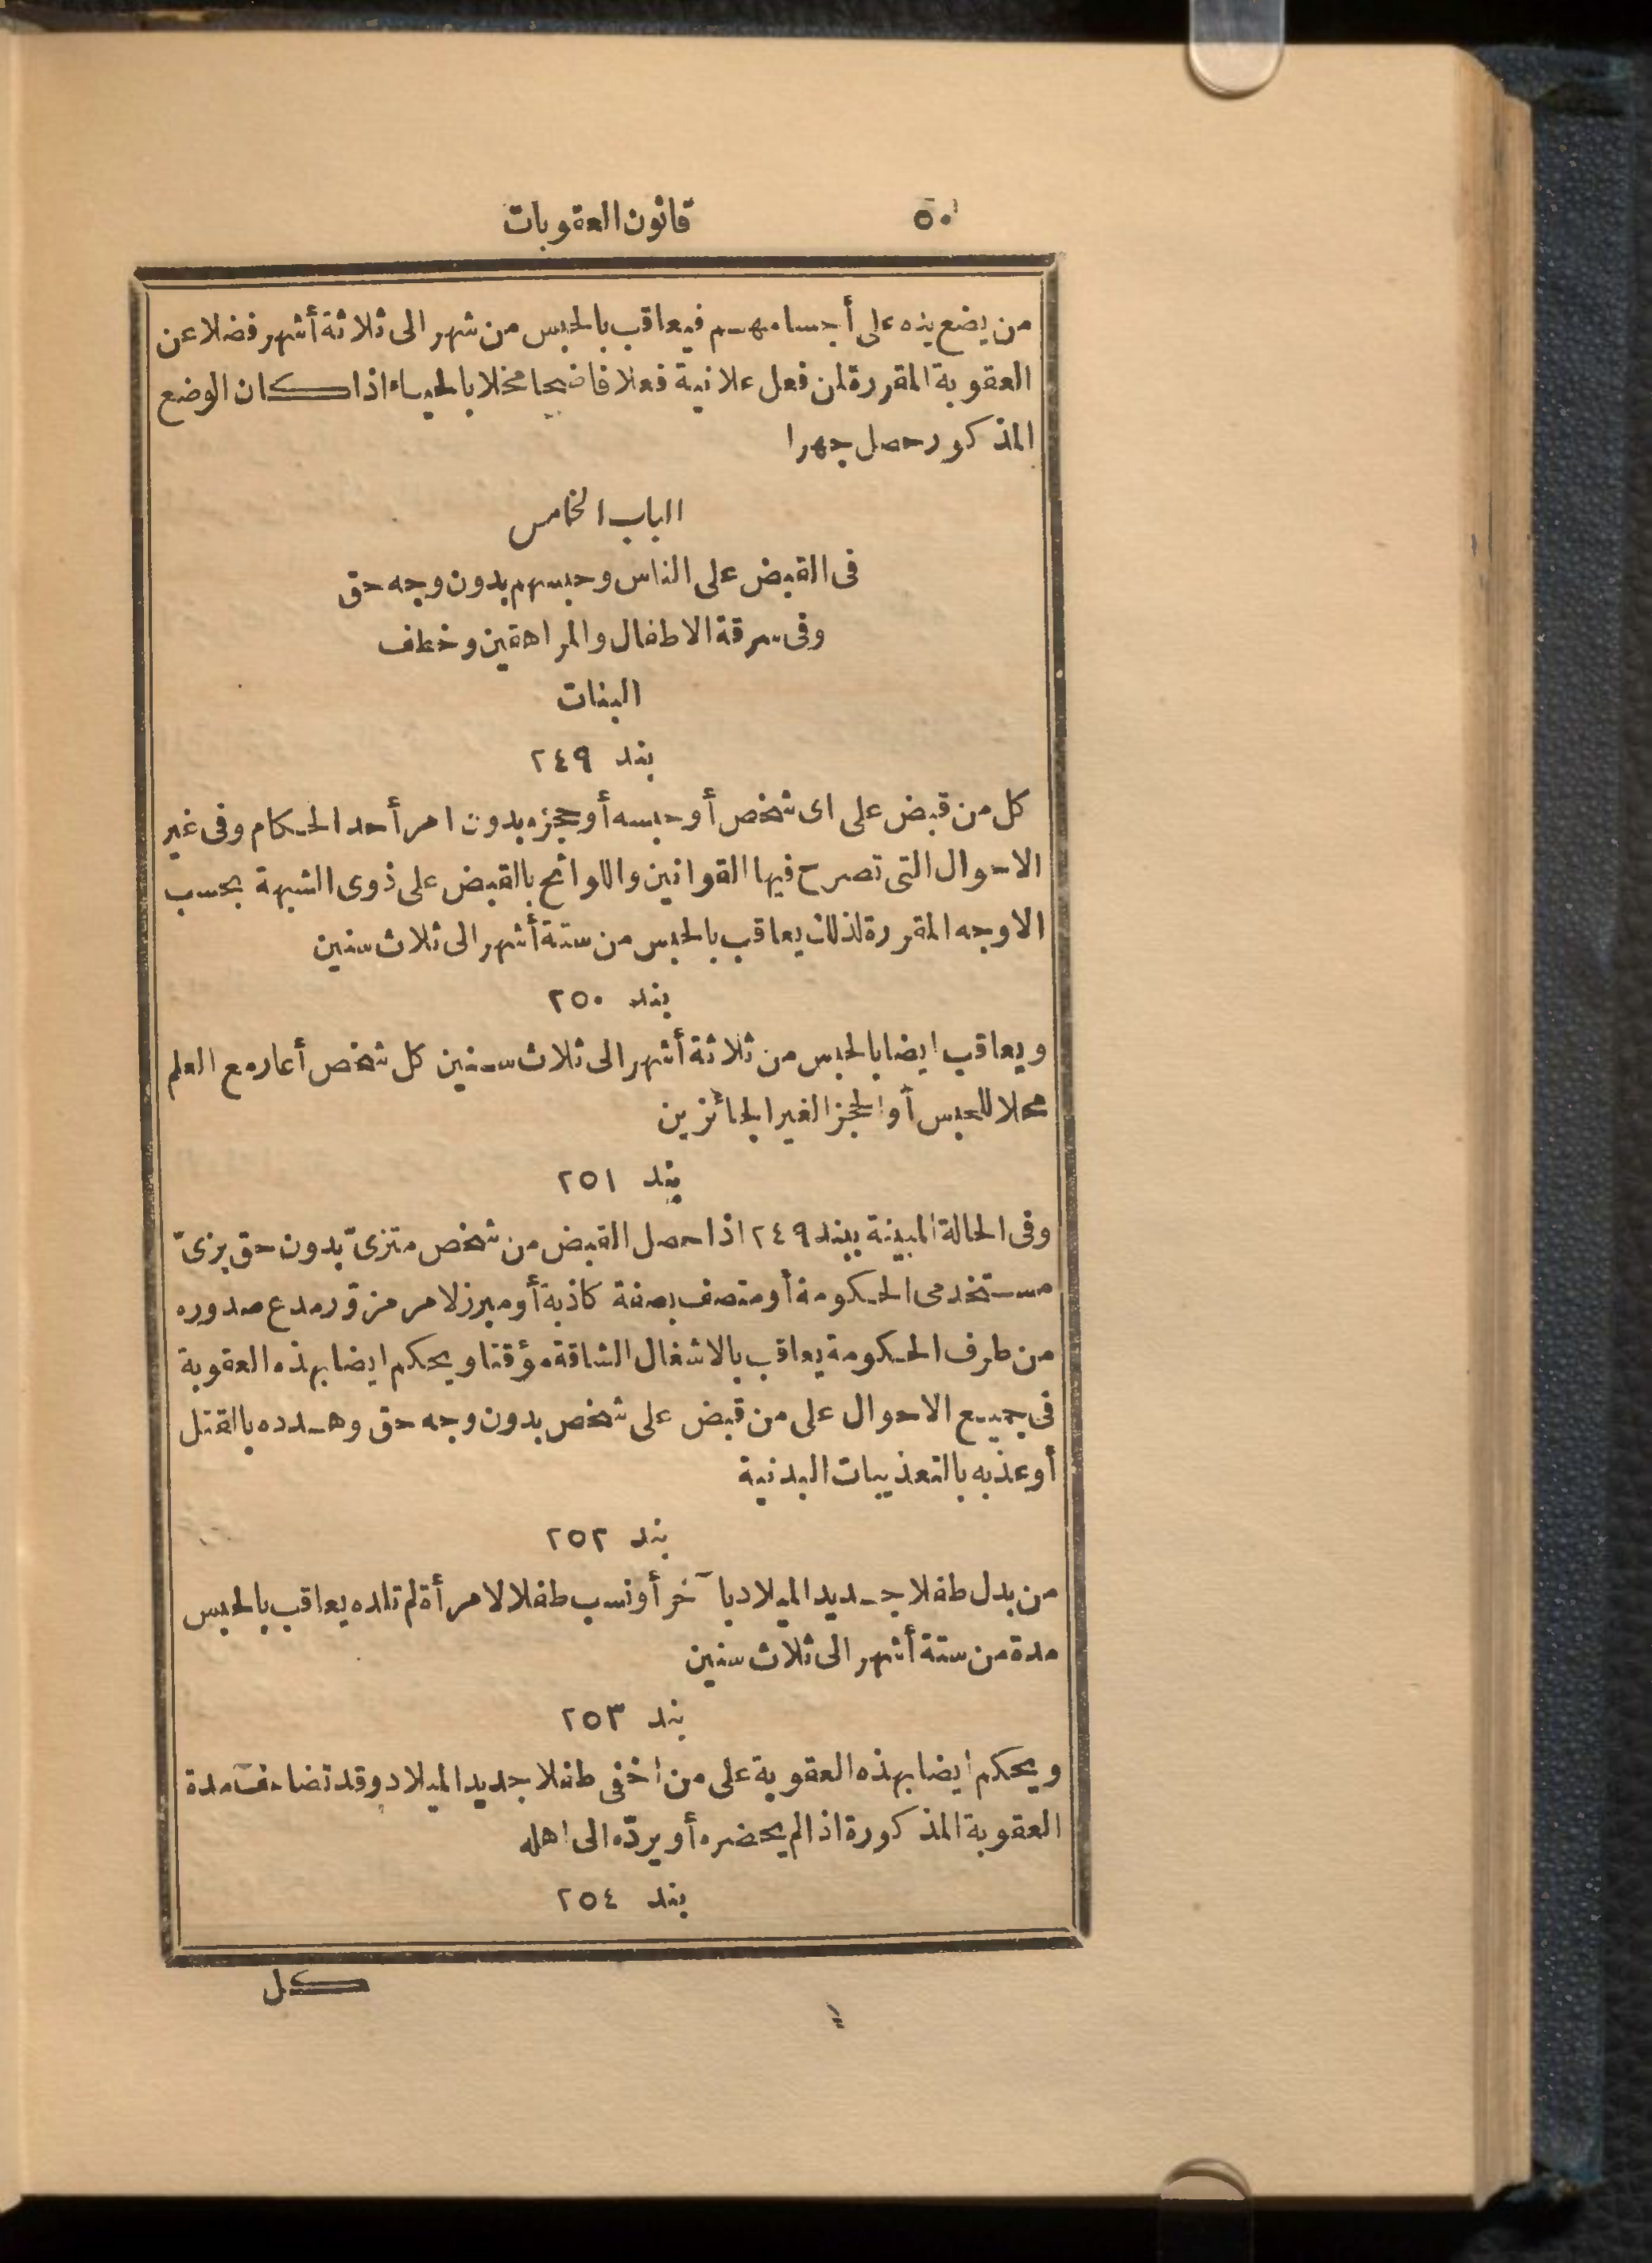 ٥٠ قانون العقوبات
من يضع يده على أجسامهم فيعاقب بالحبس من شهر الى ثلاثة أشهر فضلا عن
العقوبة المقررة لمن فعل علانية فعلا فاضحا مخلا بالحياء اذا كان الوضع
المذكور حصل جهرا
الباب الخامس
فى القبض على الناس وحبسهم بدون وجه حق
وفى سرقة الاطفال والمراهقين وخطف
البنات
بند ٢٤٩
كل من قبض على اى شخص أو حبسه أو حجزه بدون امر أحد الحكام وفى غير
الاحوال التى تصرح فيها القوانين واللوائح بالقبض على ذوى الشبهة بحسب
الاوجه المقررة لذلك يعاقب بالحبس من ستة أشهر الى ثلاث سنين
بند ٢٥٠
ويعاقب ايضا بالحبس من ثلاثة أشهر الى ثلاث سنين كل شخص أعار مع العلم
محلا للحبس أو الحجز الغير الجائزين
بند ٢٥١
وفى الحالة المبينة ببند ٢٤٩ اذا حصل القبض من شخص متزىّ بدون حق بزىّ
مستخدمى الحكومة أو متصف بصفة كاذبة أو مبرز لامر مزوّر مدع صدوره
من طرف الحكومة يعاقب بالاشغال الشاقة مؤقتا ويحكم ايضا بهذه العقوبة
فى جميع الاحوال على من قبض على شخص بدون وجه حق وهدده بالقتل
أو عذبه بالتعذيبات البدنية
بند ٢٥٢
من بدل طفلا جديد الميلاد بآخر أو نسب طفلا لامرأة لم تلده يعاقب بالحبس
مدة من ستة أشهر الى ثلاث سنين
بند ٢٥٣
ويحكم ايضا بهذه العقوبة على من اخفى طفلا جديد الميلاد وقد تضاعف مدة
العقوبة المذكورة اذا لم يحضره أو يردّه الى اهله
بند ٢٥٤
كل